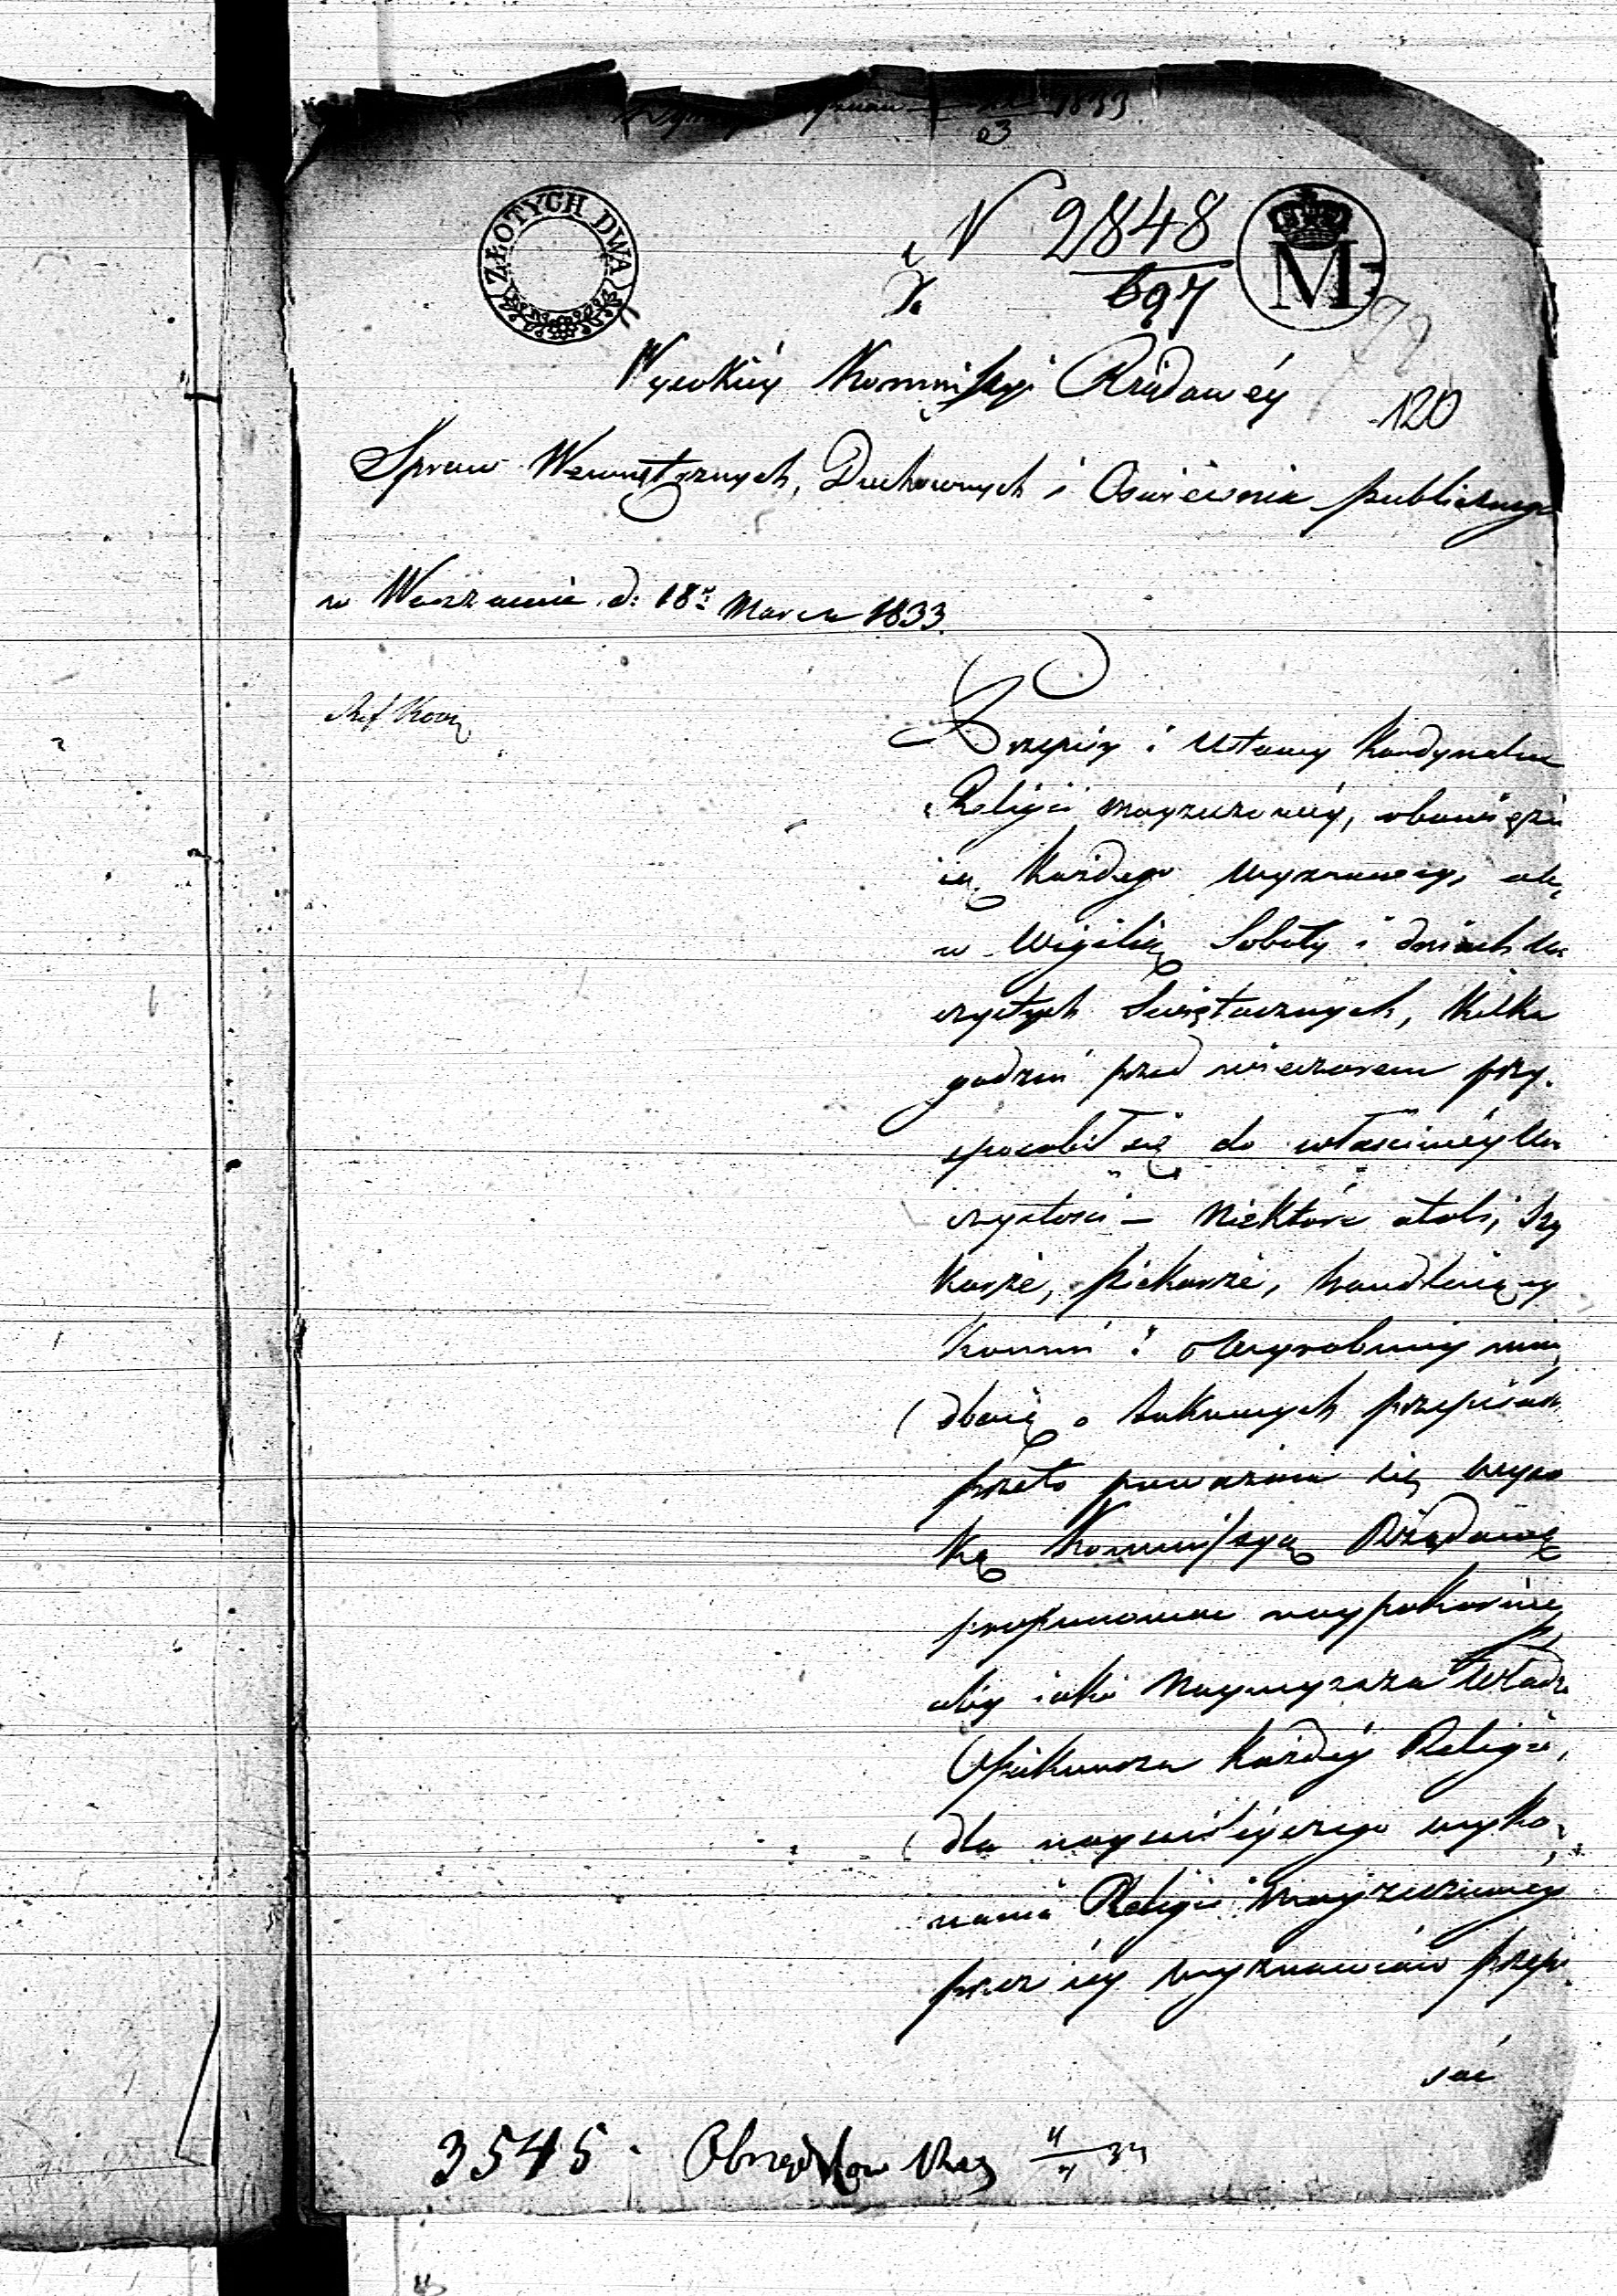 1833
23
ZŁOTYCH DWA
N 2848
697
M
Wysokiéy Kommissyi Rządowéy
120
Spraw Wewnętrznych, Duchownych i Oświecenia publicznego
w Warszawie d: 18 Marca 1833.
Przepisy i Ustawy Kardynalne
Religii mojżeszowéy, obowięzu
ią każdego wyznawcę, aby
w wigilią Soboty i dniach Uro
czystych Świątecznych, kilka
godzin przed wieczorem przy
sposobił się do właściwéy Uro
czystości – Niektóre atoli, Szy
karze, piekarze, handluiący
i
dbaią o takowych przepisach
przeto poważam się wyso
ką Kommissyą Rządową
naypokorniéy
aby iako Naywyższa Władza
Opiekuncza każdéy Religii,
dla nayściśleyszego wyko
nania Religii Mojżeszowéy
przez iéy wyznawców przepi
sać
3545.